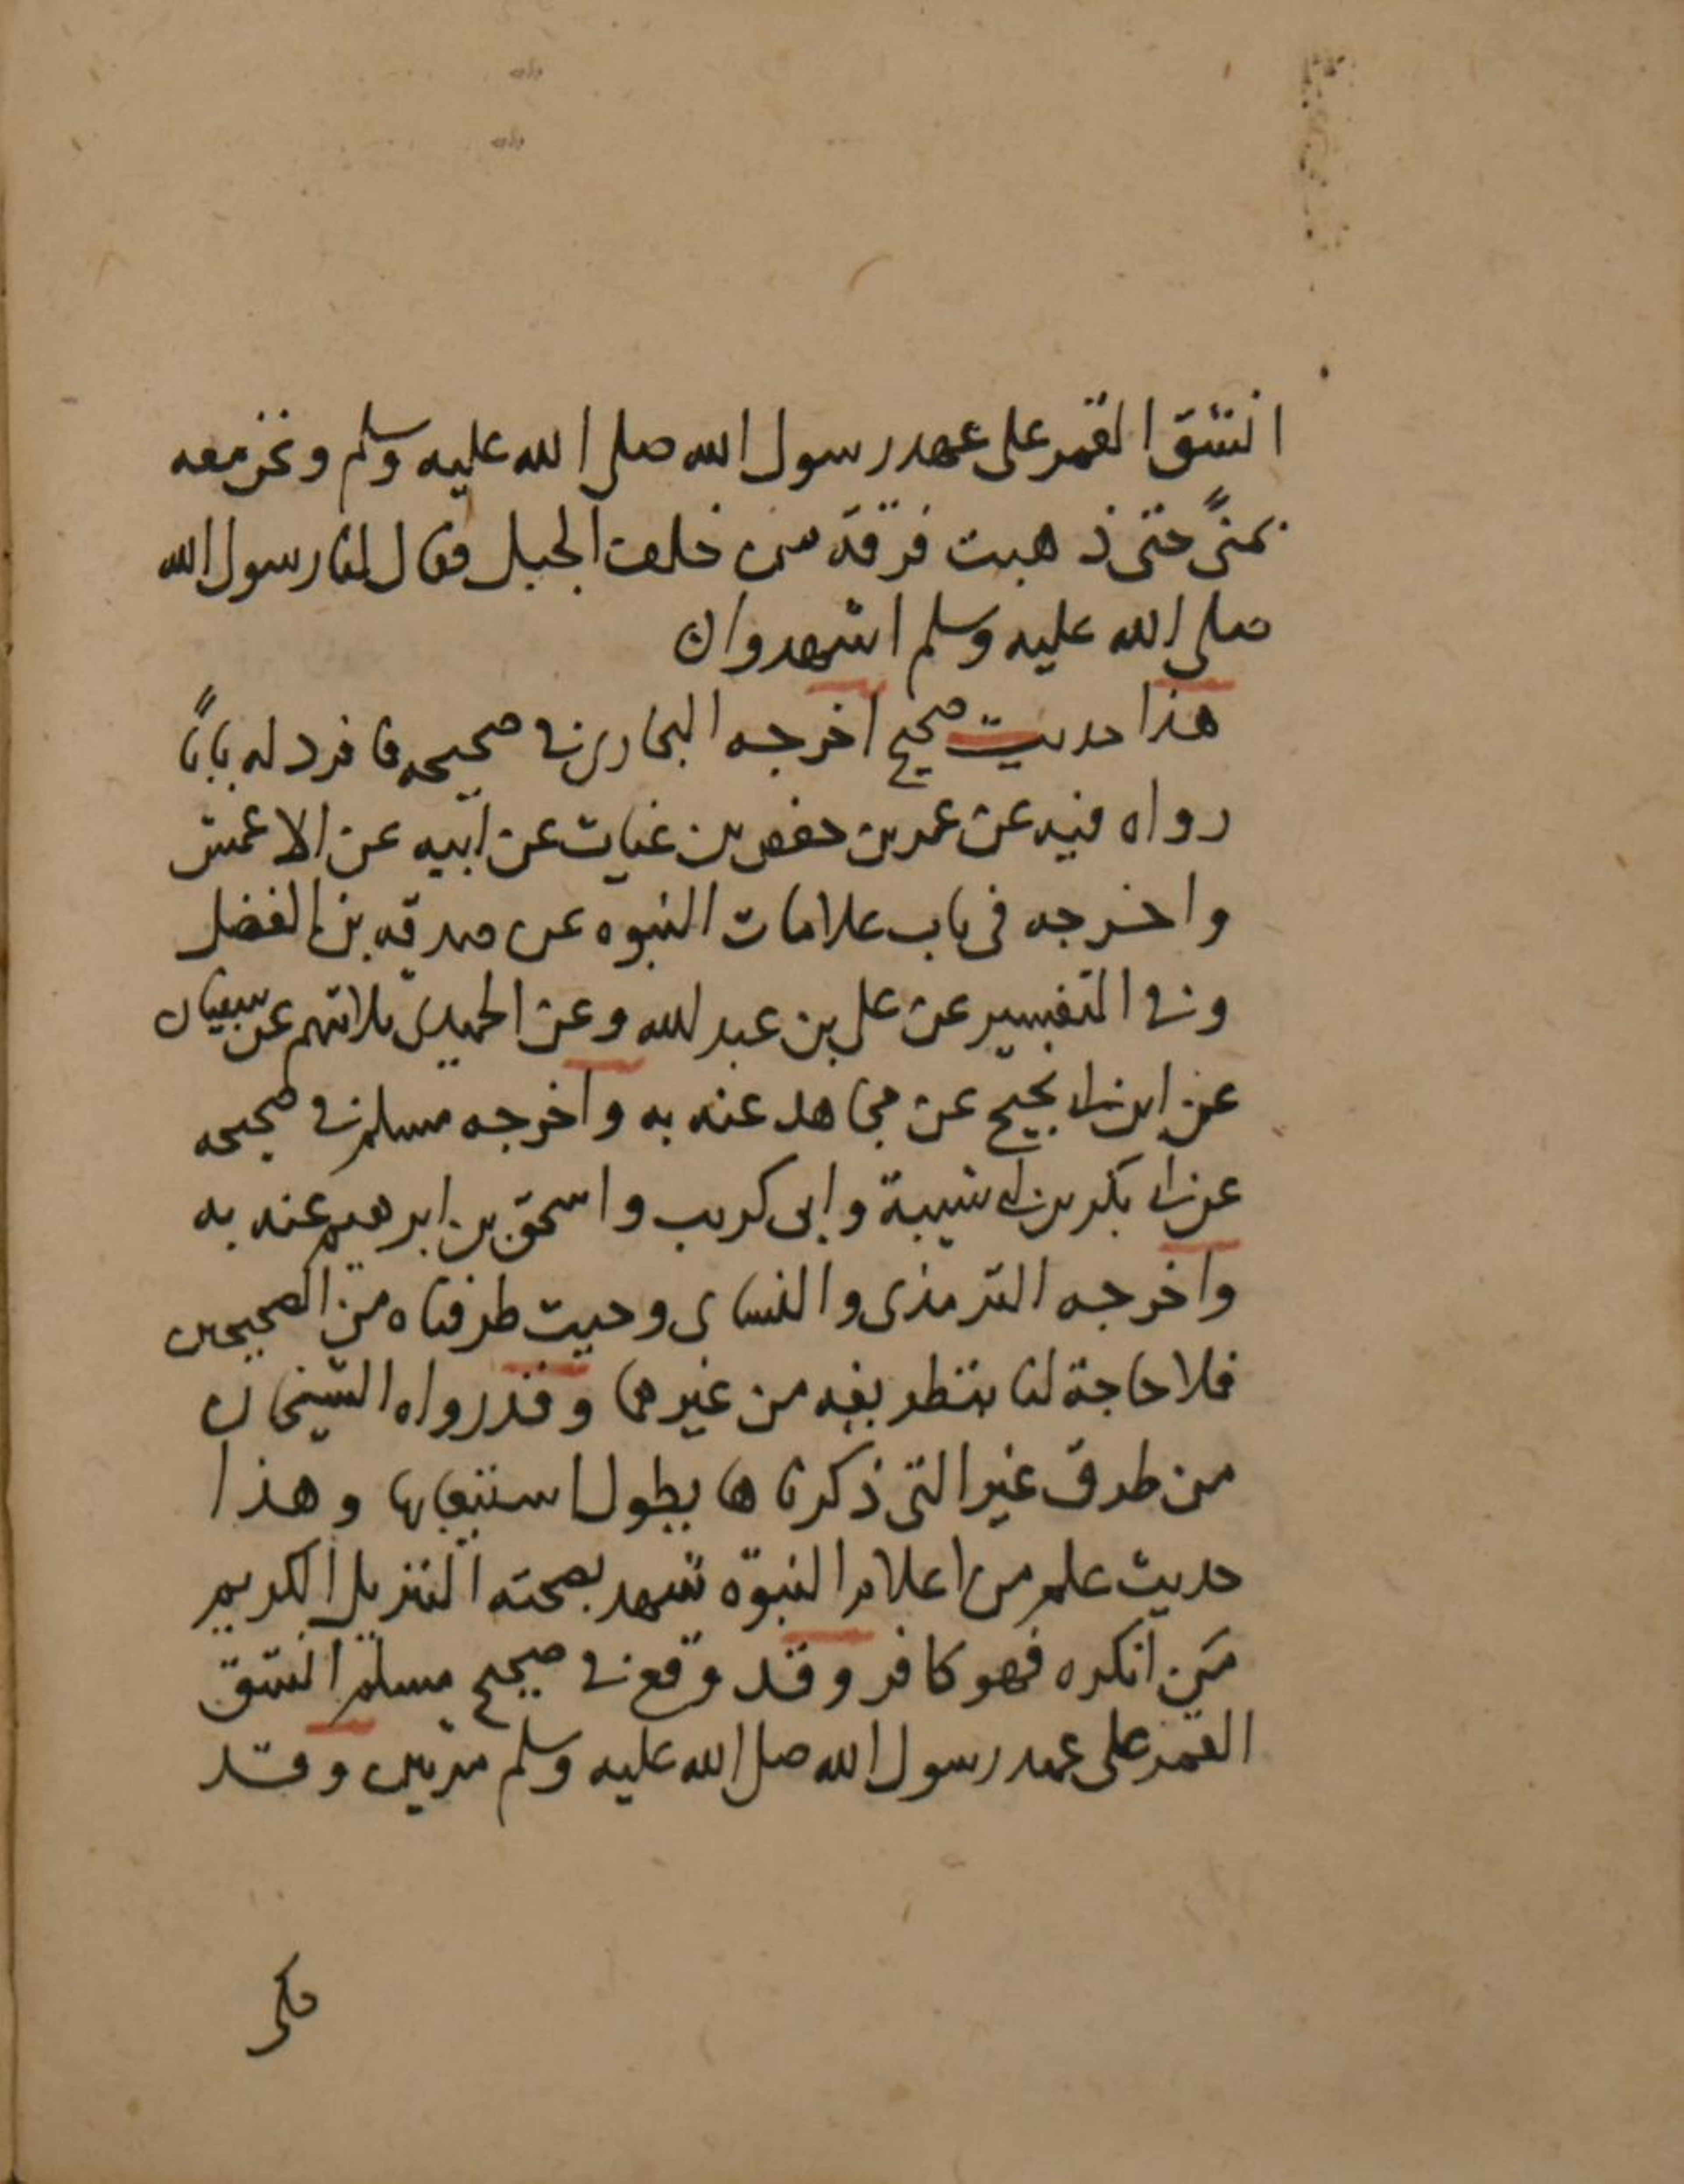 انشق القمر على عهد رسول الله صلى الله عليه وسلم ونحن معه
بمنىً حتى ذهبت فرقة من خلف الجبل فقال لنا رسول الله
صلى الله عليه وسلم اشهدوا ن
هذا حديث صحيح اخرجه البخاري في صحيحه فافرد له باباً
رواه فيه عن عمر بن حفص بن غياث عن ابيه عن الاعمش
واخرجه في باب علامات النبوه عن صدقه بن الفضل
وفي التفسير عن علي بن عبد الله وعن الحميدي ثلاثتهم عن سفيان
عن ابن ابي نجيح عن مجاهد عنه به واخرجه مسلم في صحيحه
عن ابي بكر بن ابي شيبة وابي كريب واسحق بن ابرهيم عنه به
واخرجه الترمذي والنساي وحيث طرفناه من الصحيحين
فلا حاجة لنا بتطريفه من غيرهما وقد رواه الشيخان
من طرق غير التي ذكرناها يطول استيعابها وهذا
حديث علم من اعلام النبوّة تشهد بصحته التنزيل الكريم
مَن انكره فهو كافر وقد وقع في صحيح مسلم انشق
القمر على عهد رسول الله صلى الله عليه وسلم مرتين وقد
حكى